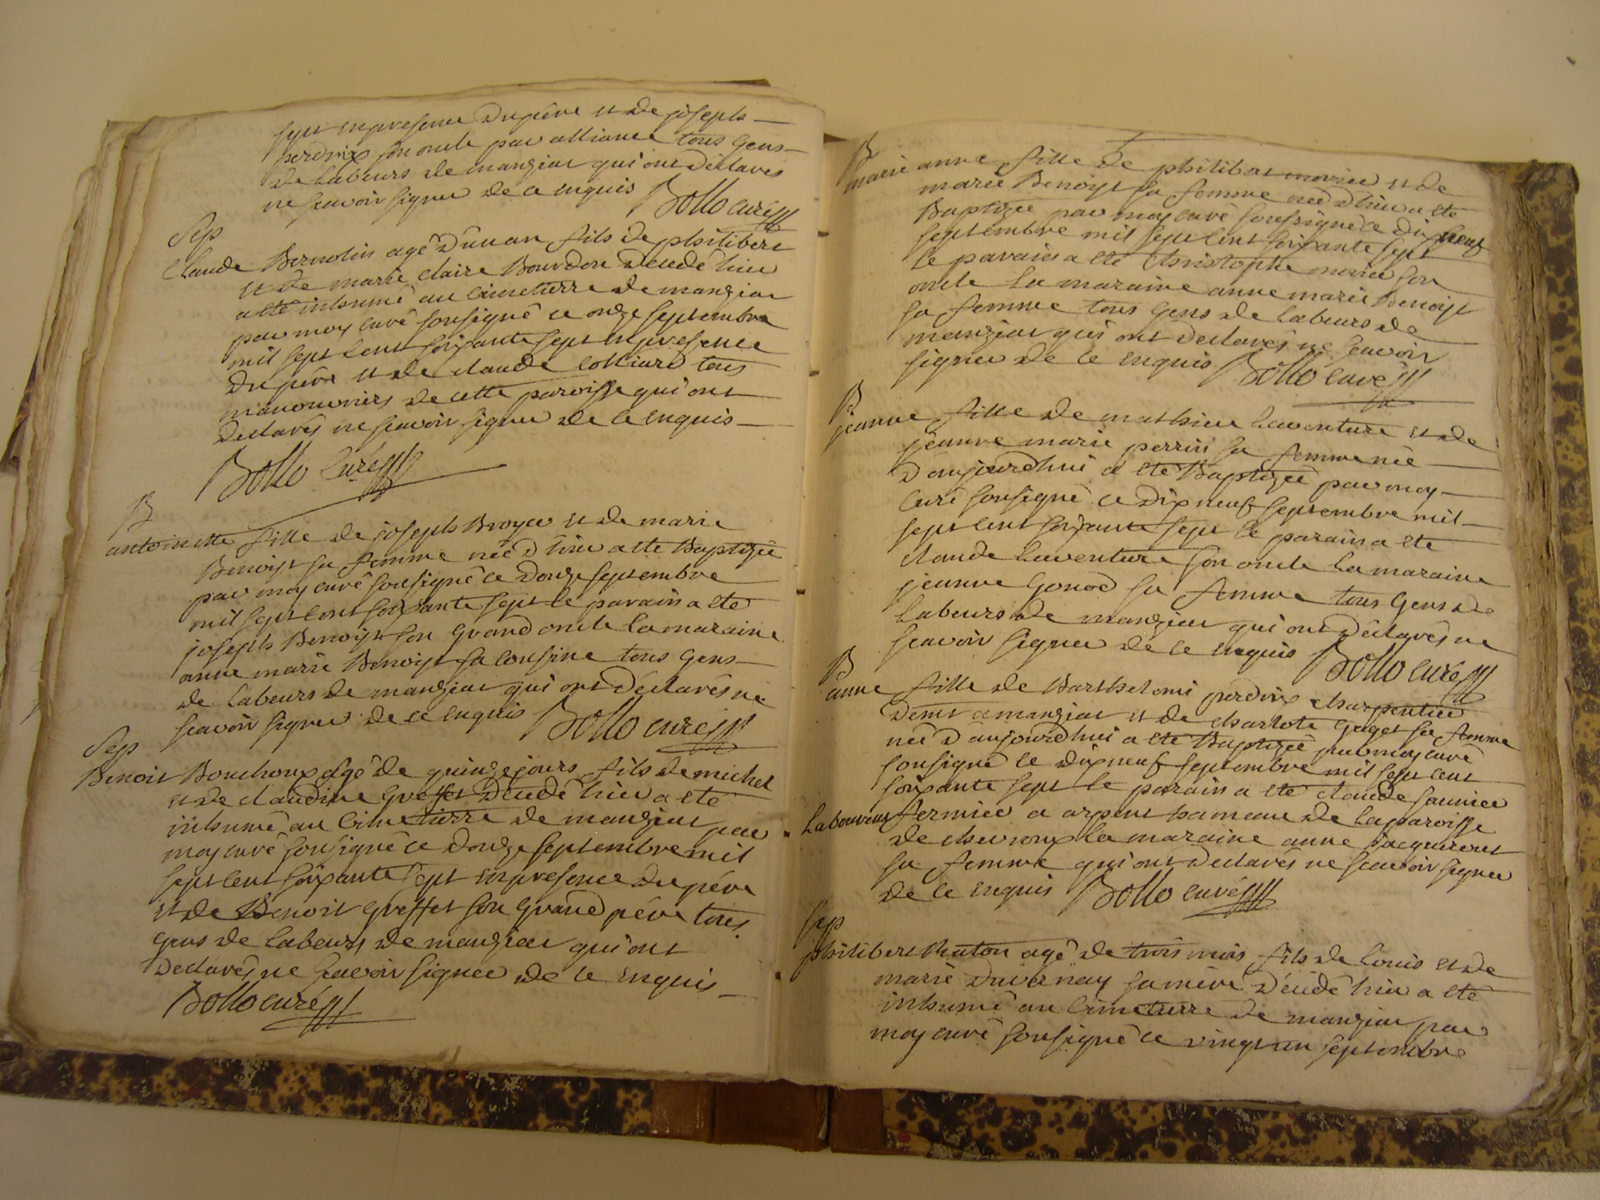 sept en presence du père et de joseph
perdrix son oncle par alliance tous gens
de labeurs de manziat qui ont déclarés
ne scavoir signer de ce enquis Bollo curé
Sep
Claude Bernolin agé d'un an fils de philibert
et de marie claire Bourdon décédé hier
a été inhumé au cimetierre de manziat
par moy curé sousigné ce onze septembre
mil sept cent soixante sept en presence
du père et de claude colliard tous
manouvriers de cette paroisse qui ont
déclarés ne scavoir signer de ce enquis
Bollo curé
B
antoinette fille de joseph Broyer et de marie
Benoist sa femme née d'hier a été Baptizée
par moy curé sousigné ce douze septembre
mil sept cent soixante sept le parain a été
joseph Benoist son grand oncle la maraine
anne marie Benoist sa cousine tous gens
de labeurs de manziat qui ont déclarés ne
scavoir signer de ce enquis Bollo curé
Sep
Benoit Bouchoux agé de quinze jours fils de michel
et de claudine Greffet décédé hier a été
inhumé au cimetierre de manziat par
moy curé sousigné ce douze septembre mil
sept cent soixante sept en presence du père
et de Benoit Greffet son grand père tous
gens de labeurs de manziat qui ont
declarés ne scavoir signer de ce enquis
Bollo curé
B
marie anne fille de philibert et de
marie Benoist sa femme née d'hier a été
Baptizée par moy curé soussigné ce dix
septembre mil sept cent soixante sept
le parain a été christophe son
oncle la maraine anne marie Benoist
sa femme tous gens de labeurs de
manziat qui ont déclarés ne scavoir
signer de ce enquis Bollo curé
B
jeanne fille de mathieu laventure et de
jeanne marie perrin sa femme née
d'aujourdhui a été Baptizée par moy
curé sousigné ce dix neuf septembre mil
sept cent soixante sept le parain a été
claude laventure son oncle la maraine
jeanne Gonod sa femme tous gens de
labeurs de manziat qui ont déclarés ne
scavoir signer de ce enquis Bollo curé
B
anne fille de Barthelemi perdrix charpentier
demt a manziat et de charlote Goyet sa femme
née d'aujourdhui a été Baptizée par moy curé
sousigné ce dix neuf septembre mil sept cent
soixante sept le parain a été claude saunier
laboureur fermier a arpent hameau de la paroisse
de chevroux la maraine anne
sa femme qui ont déclarés ne scavoir signer
de ce enquis Bollo curé
Sep
philibert agé de trois mois fils de louis et de
marie Duvernay sa mère décédé hier a été
inhumé au cimetierre de manziat par
moy curé sousigné ce vingt un septembre